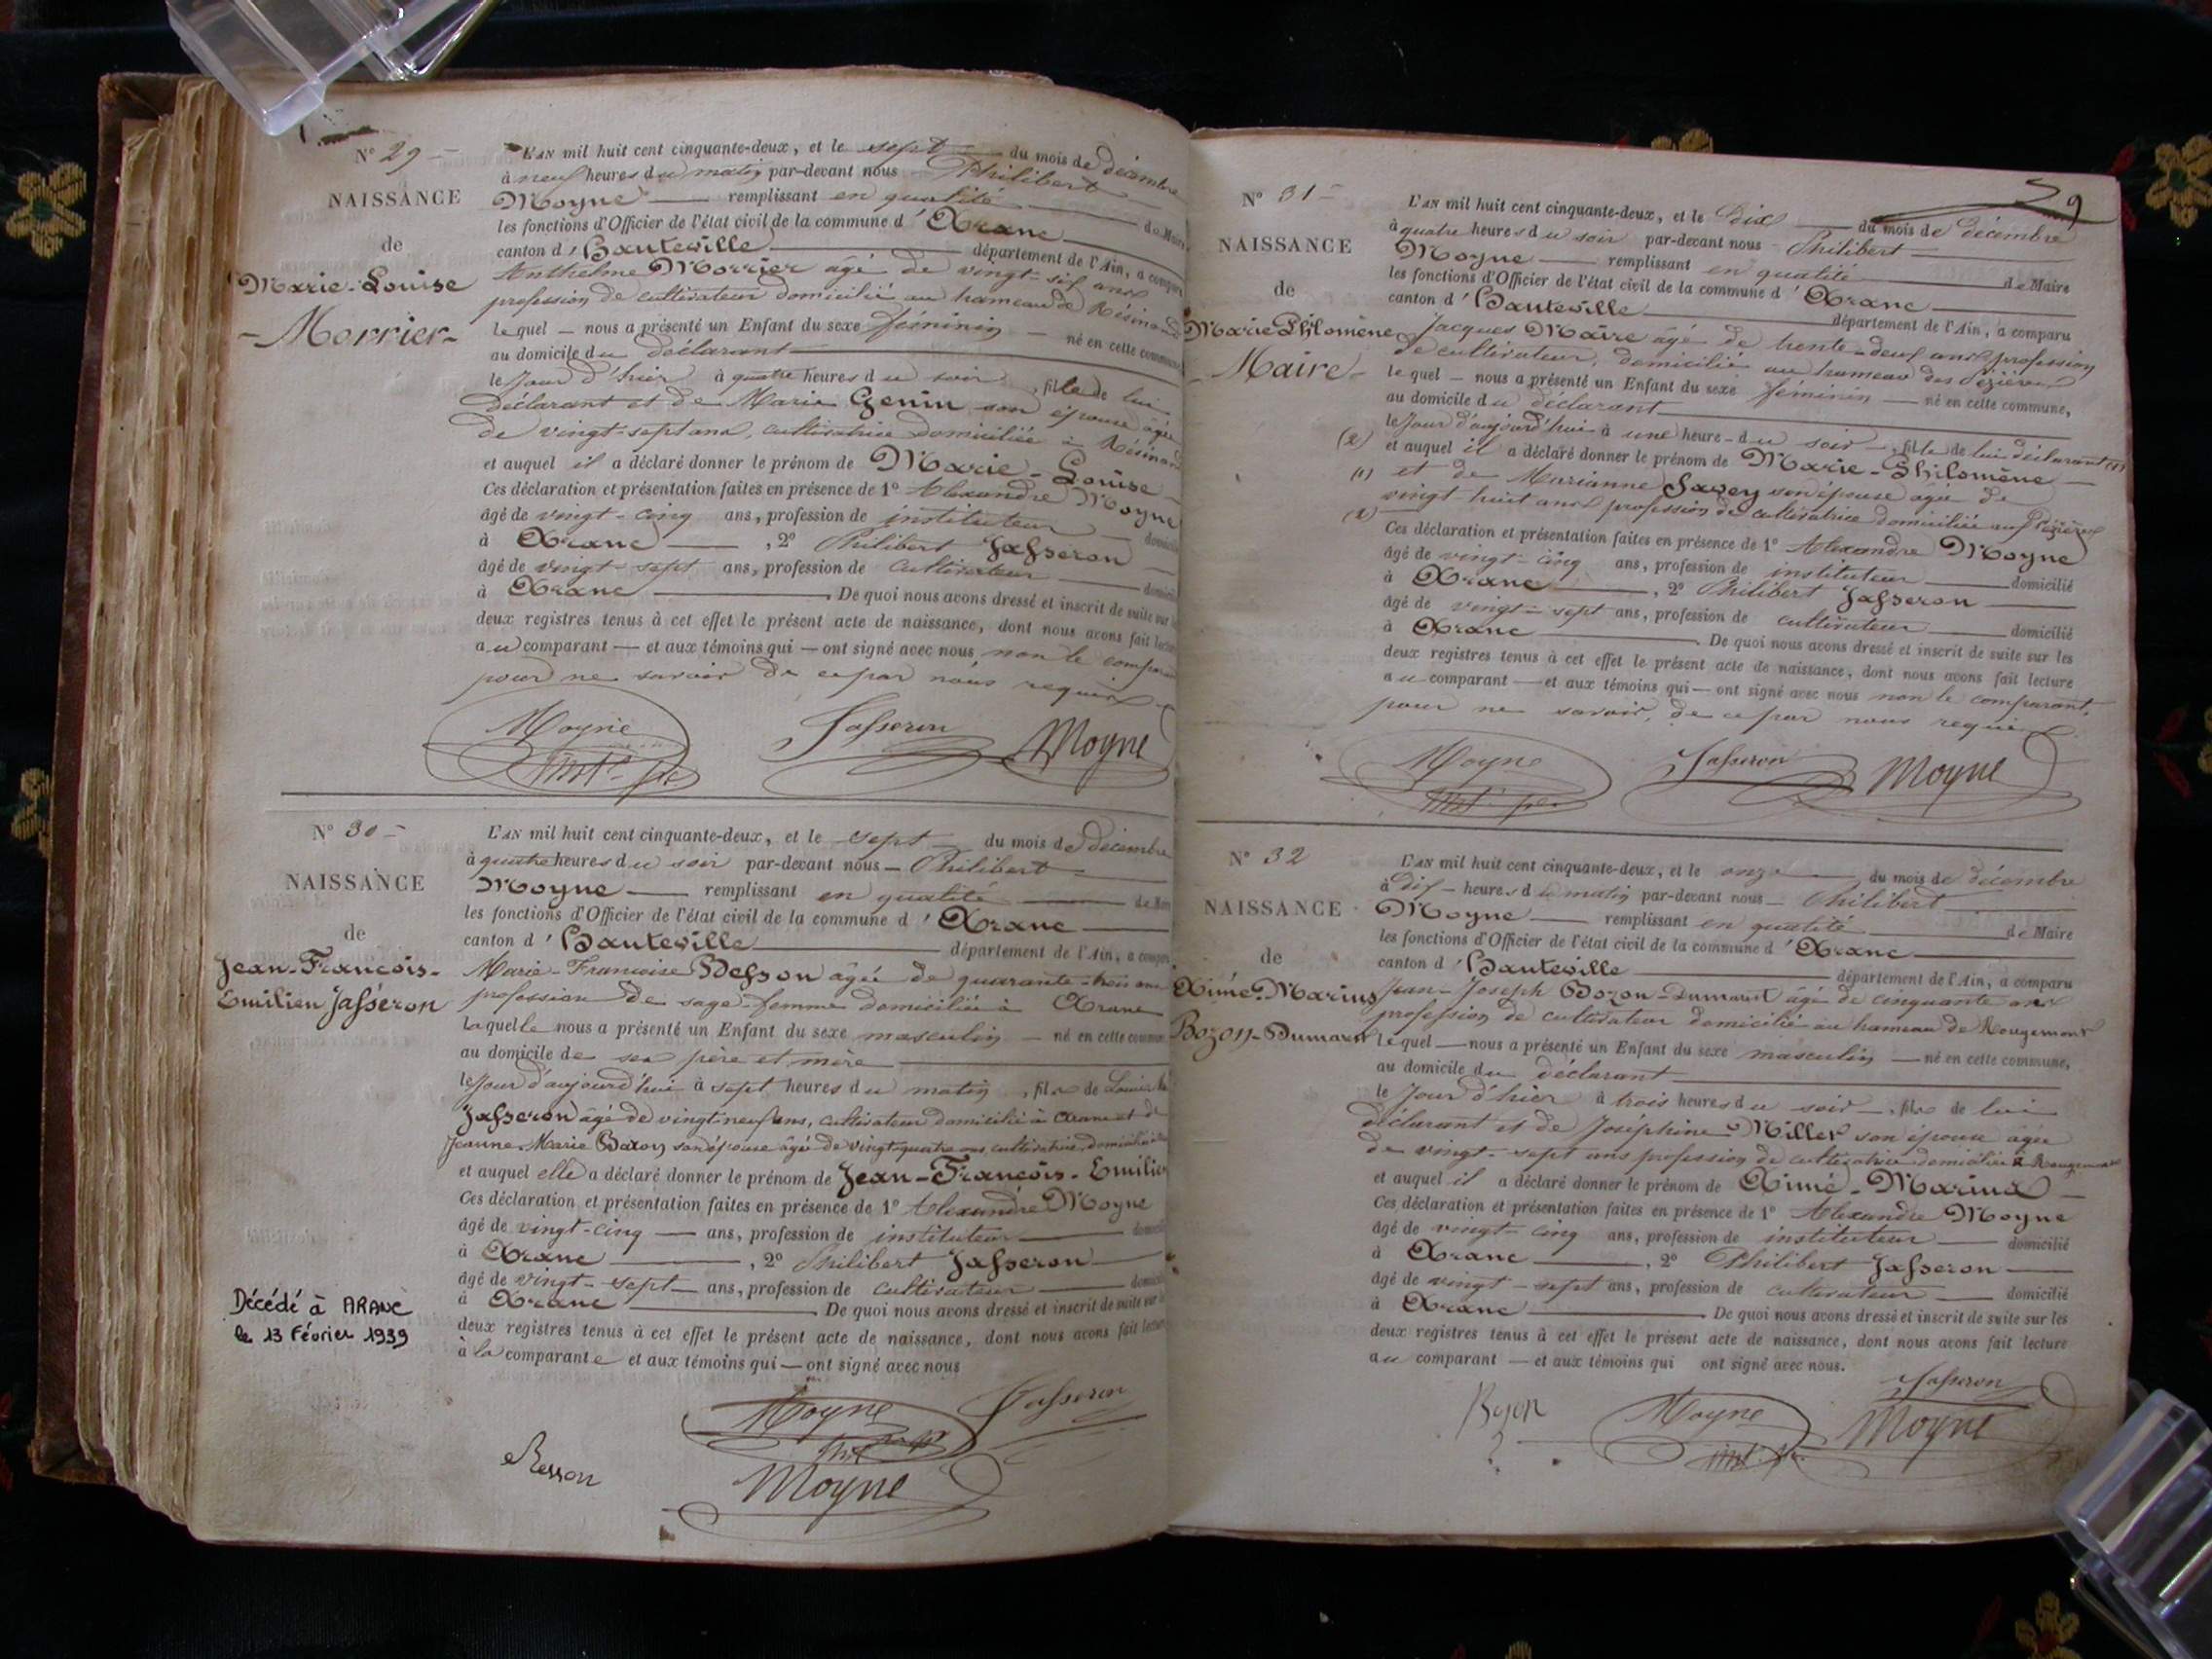 N° 29 —
NAISSANCE
de
Marie-Louise
- Morrier -
L'AN mil huit cent cinquante-deux, et le sept du mois de décembre
à neuf heures du matin par-devant nous Philibert
Moyne — remplissant en qualité de Maire
les fonctions d'Officier de l'état civil de la commune d'Aranc
canton d'Hauteville département de l'Ain, a comparu
Anthelme Morrier âgé de vingt-six ans
profession de cultivateur domicilié au hameau de Résinand
lequel — nous a présenté un Enfant du sexe féminin — né en cette commune
au domicile du déclarant
le Jour d'hier à quatre heures du soir, fille de lui
déclarant et de Marie Genin son épouse âgée
de vingt-sept ans, cultivatrice domiciliée à Résinand
et auquel il a déclaré donner le prénom de Marie-Louise
Ces déclaration et présentation faites en présence de 1° Alexandre Moyne
âgé de vingt-cinq ans, profession de instituteur — domicilié
à Aranc —, 2° Philibert Jasseron
âgé de vingt-sept ans, profession de cultivateur — domicilié
à Aranc — De quoi nous avons dressé et inscrit de suite sur les
deux registres tenus à cet effet le présent acte de naissance, dont nous avons fait lecture
au comparant — et aux témoins qui — ont signé avec nous non le comparant
pour ne savoir de ce par nous requis
Moyne Jasseron Moyne
inst.
N° 30 —
NAISSANCE
de
Jean-François-
Emilien Jasseron
Décédé à ARANC
le 13 Février 1939
L'AN mil huit cent cinquante-deux, et le sept du mois de décembre
à quatre heures du soir par-devant nous — Philibert
Moyne — remplissant en qualité — de Maire
les fonctions d'Officier de l'état civil de la commune d'Aranc
canton d'Hauteville département de l'Ain, a comparu
Marie-Francoise Besson âgée de quarante-trois ans
profession de sage-femme domiciliée à Aranc
laquelle nous a présenté un Enfant du sexe masculin — né en cette commune
au domicile de ses père et mère
le Jour d'aujourd'hui à sept heures du matin, fils de Louis
Jasseron âgé de vingt-neuf ans, cultivateur domicilié à Aranc et de
Jeanne-Marie son épouse âgée de vingt-quatre ans cultivatrice domiciliée
et auquel elle a déclaré donner le prénom de Jean-François-Emilien
Ces déclaration et présentation faites en présence de 1° Alexandre Moyne
âgé de vingt-cinq — ans, profession de instituteur — domicilié
à Aranc —, 2° Philibert Jasseron
âgé de vingt-sept — ans, profession de cultivateur — domicilié
à Aranc — De quoi nous avons dressé et inscrit de suite sur les
deux registres tenus à cet effet le présent acte de naissance, dont nous avons fait lecture
à la comparante et aux témoins qui — ont signé avec nous
Moyne Jasseron
Besson
Moyne
N° 31 —
NAISSANCE
de
Marie Philomène
Maire -
59
L'AN mil huit cent cinquante-deux, et le dix du mois de décembre
à quatre heures du soir par-devant nous Philibert
Moyne — remplissant en qualité de Maire
les fonctions d'Officier de l'état civil de la commune d'Aranc
canton d'Hauteville département de l'Ain, a comparu
Jacques Maire âgé de trente-deux ans profession
de cultivateur, domicilié au hameau des Pézières
lequel — nous a présenté un Enfant du sexe féminin — né en cette commune,
au domicile du déclarant
le Jour d'aujourd'hui à une heure du soir, fille de lui déclarant (1)
(2) et auquel il a déclaré donner le prénom de Marie-Philomène
(1) et de Marianne Savey son épouse âgée de
vingt-huit ans profession de cultivatrice domiciliée aux Pézières
(2)
Ces déclaration et présentation faites en présence de 1° Alexandre Moyne
âgé de vingt-cinq ans, profession de instituteur — domicilié
à Aranc —, 2° Philibert Jasseron
âgé de vingt-sept ans, profession de cultivateur — domicilié
à Aranc — De quoi nous avons dressé et inscrit de suite sur les
deux registres tenus à cet effet le présent acte de naissance, dont nous avons fait lecture
au comparant — et aux témoins qui — ont signé avec nous non le comparant,
pour ne savoir, de ce par nous requis
Moyne Jasseron Moyne
inst.
N° 32
NAISSANCE
de
Aimé-Marius
Bozon-Dumarest
L'AN mil huit cent cinquante-deux, et le onze du mois de décembre
à dix — heures du matin par-devant nous — Philibert
Moyne — remplissant en qualité de Maire
les fonctions d'Officier de l'état civil de la commune d'Aranc
canton d'Hauteville département de l'Ain, a comparu
Jean-Joseph Bozon-Dumarest âgé de cinquante ans
profession de cultivateur domicilié au hameau de Rougemont
lequel — nous a présenté un Enfant du sexe masculin — né en cette commune,
au domicile du déclarant
le Jour d'hier à trois heures du soir —, fils de lui
déclarant et de Joséphine Millet son épouse âgée
de vingt-sept ans profession de cultivatrice domiciliée à Rougemont
et auquel il a déclaré donner le prénom de Aimé-Marius
Ces déclaration et présentation faites en présence de 1° Alexandre Moyne
âgé de vingt-cinq ans, profession de instituteur — domicilié
à Aranc —, 2° Philibert Jasseron
âgé de vingt-sept ans, profession de cultivateur — domicilié
à Aranc — De quoi nous avons dressé et inscrit de suite sur les
deux registres tenus à cet effet le présent acte de naissance, dont nous avons fait lecture
au comparant — et aux témoins qui ont signé avec nous.
Jasseron
Bozon Moyne Moyne
inst.